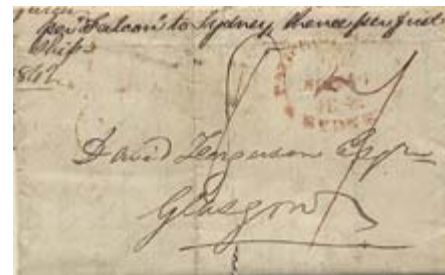 per "Falcon" to Sydney, thence per first
Ship
1842
SYDNEY
David Ferguson Esqre
Glasgow